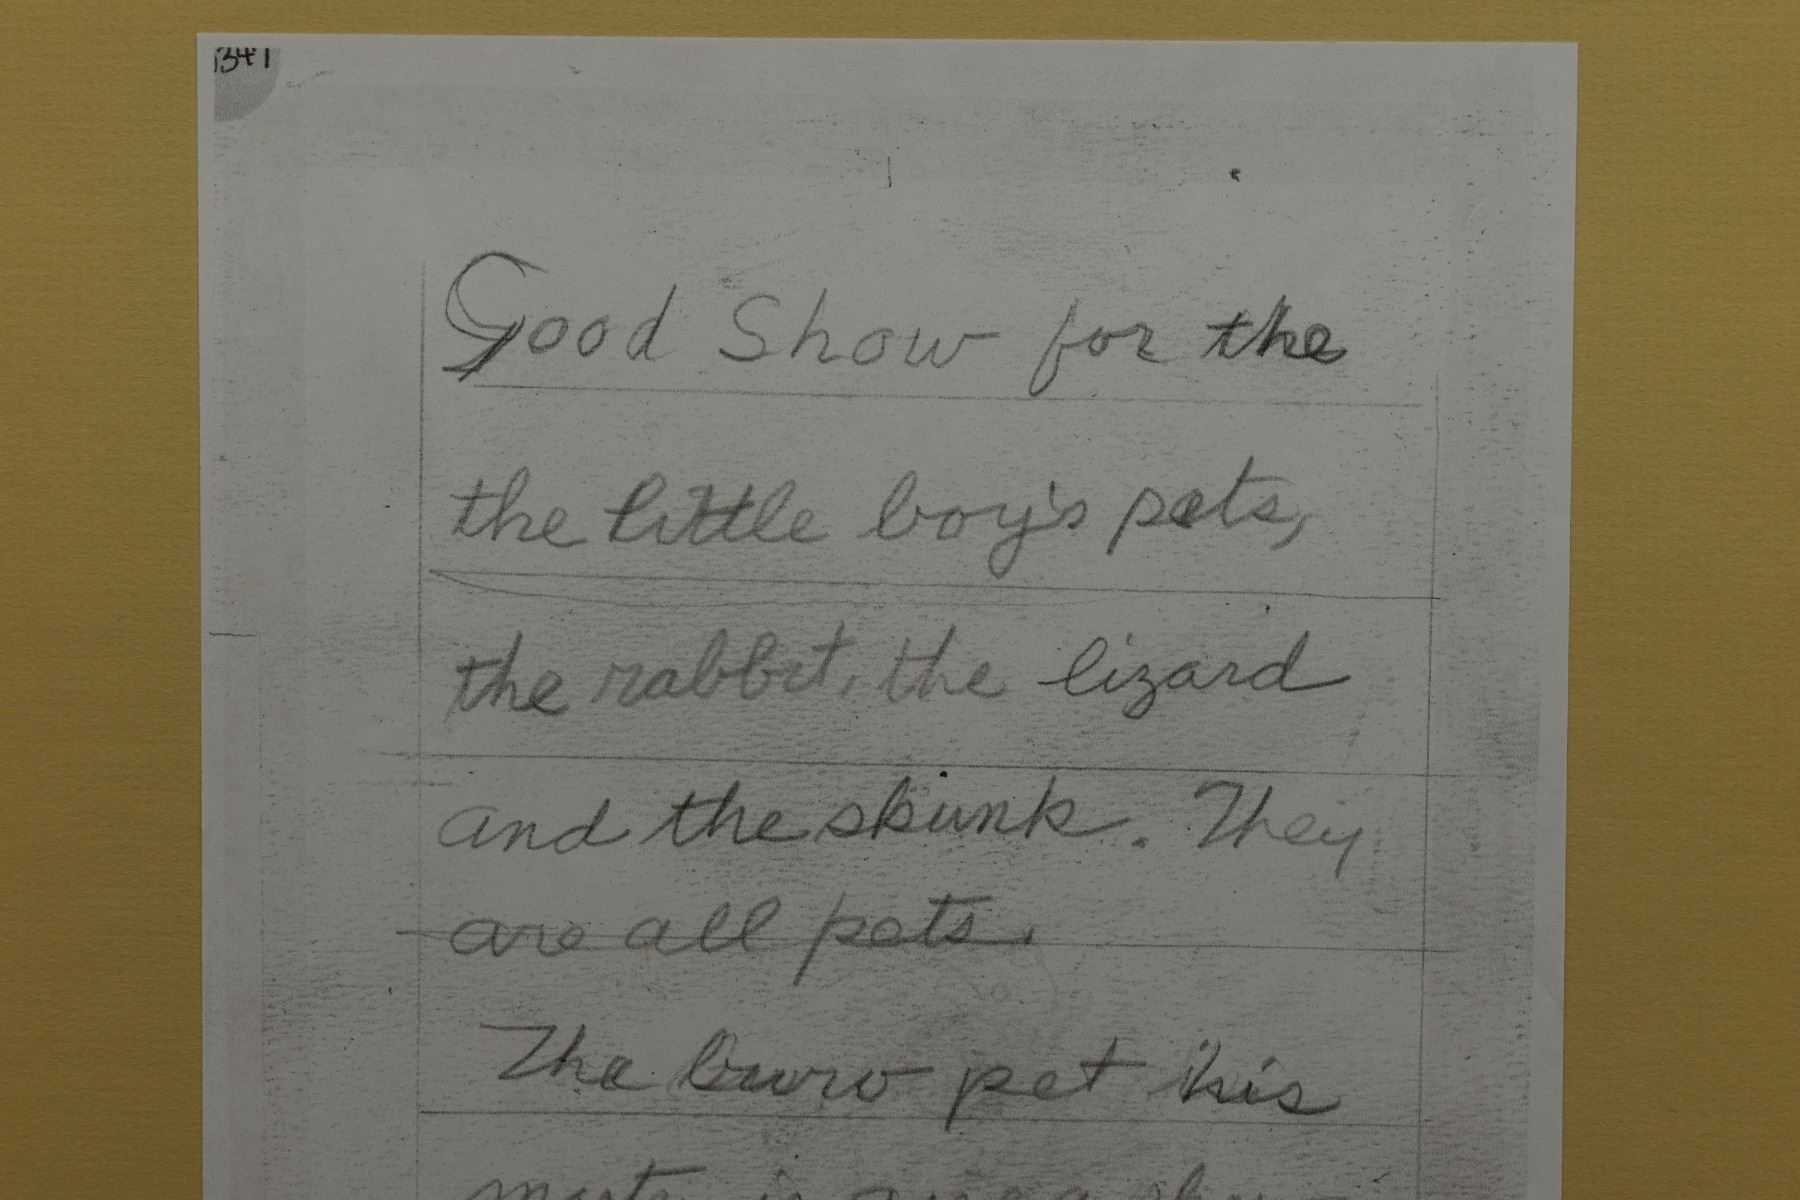 1341
Good Show for the
the little boy's pets,
the rabbit, the lizard
and the skunk. They
are all pets.
The burro pet his
is